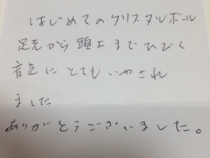 はじめてのクリスタルボール
足先から頭上までひびく
音色にとてもいやされ
ました
ありがとうございました。